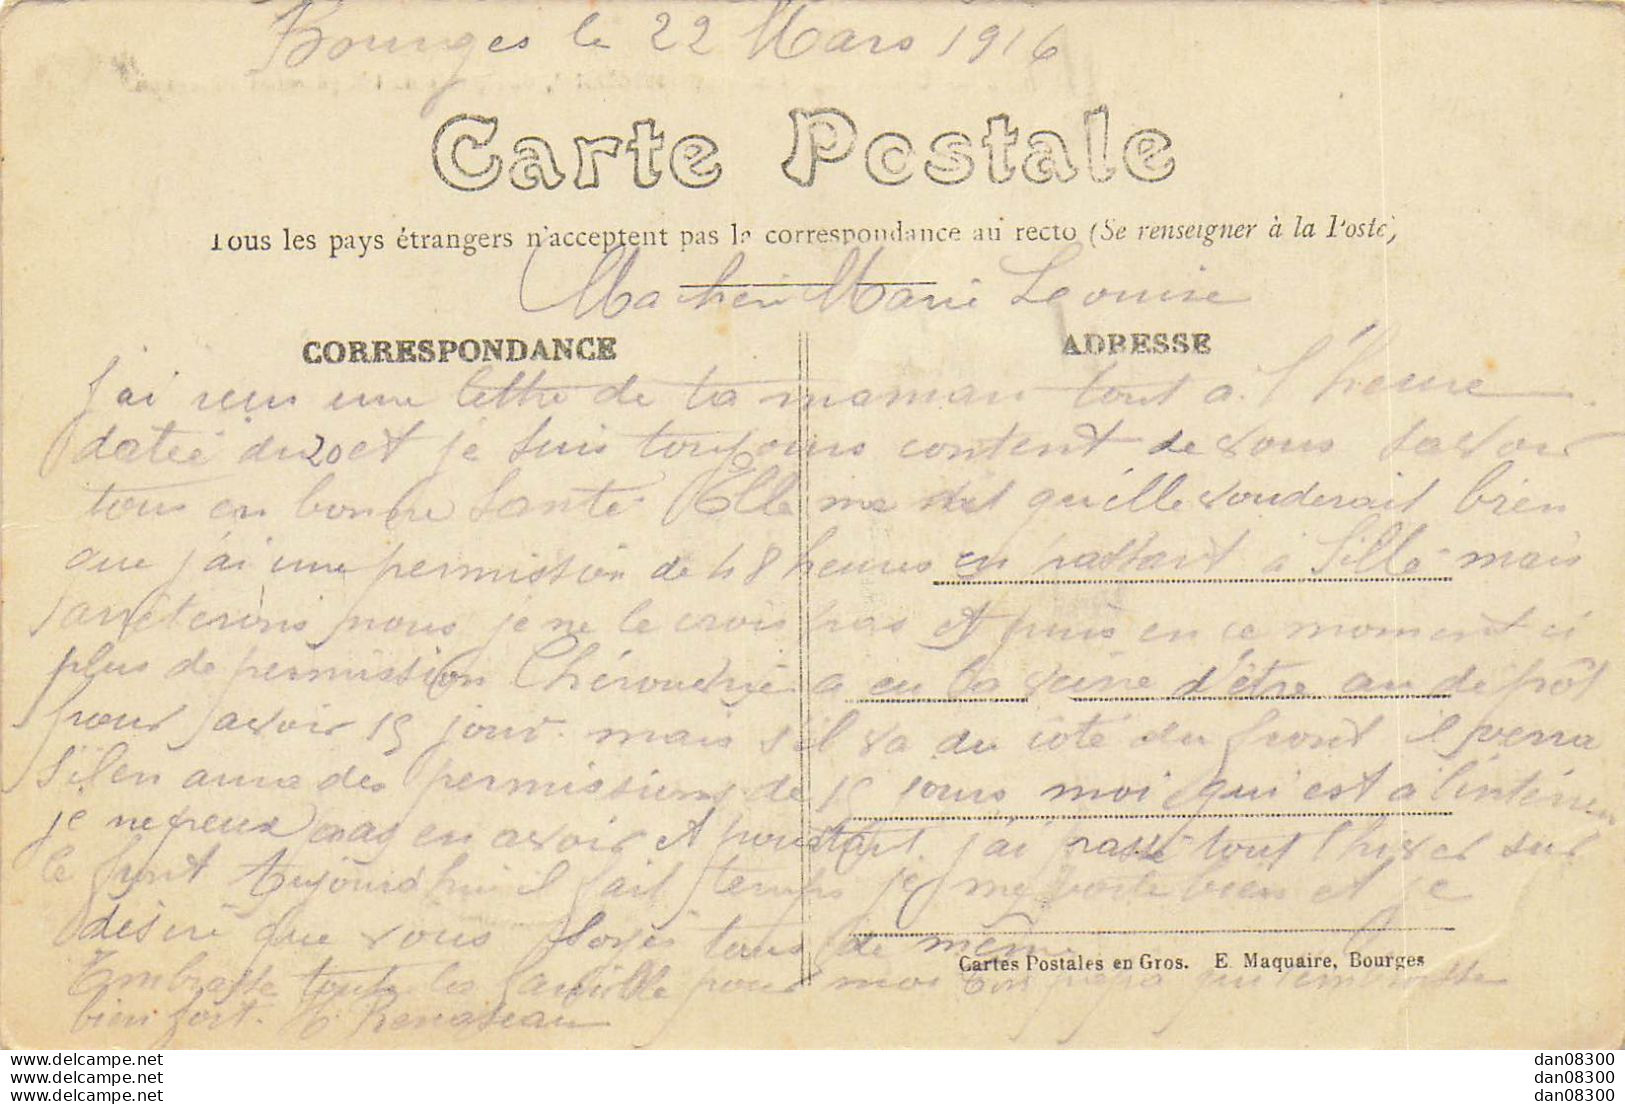 Bourges le 22 Mars 1916
Carte Postale
Tous les pays étrangers n'acceptent pas la correspondance au recto (Se renseigner à la Poste)
Ma cheri Marie Leouise
CORRESPONDANCE
ADRESSE
j'ai reçu une lettre de ta maman tout a l'heure
datée du 20 et je suis toujours content de vous savoir
tous en bonne santé Elle me dit qu'elle vouderait bien
que j'ai une permission de 48 heures en passant à Sillé mais
arrêterons nous je ne le crois pas et puis en ce moment ci
plus de permission a eu la veine d'être au dépôt
pour avoir 15 jour mais s'il va du coté du front il verra
s'il en aura des permissions de 15 jours moi qui est a l'intérieur
je ne peux pas en avoir et pourtant j'ai passé tout l'hiver sur
le front aujourd'hui il fait temps je me porte bien et je
désire que vous soyes tous de même
Cartes Postales en Gros. E. Maquaire, Bourges
Embrasse toute la famille pour moi Ton papa qui t'embrasse
bien fort.
dan08300
dan08300
dan08300
www.delcampe.net
www.delcampe.net
www.delcampe.net